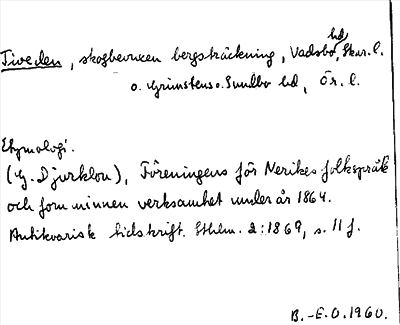 Tiveden, skogbevuxen bergsträckning, Vadsbo hd, Skar. l.
o. Grimstens o. Sundbo hd, Ör. l.
Etymologi.
(G. Djurklou), Föreningens för Nerikes folkspråk
och fornminnen verksamhet under år 1864.
Antikvarisk tidskrift. Sthlm. 2:1869, s. 11 f.
B.-E.O. 1960.